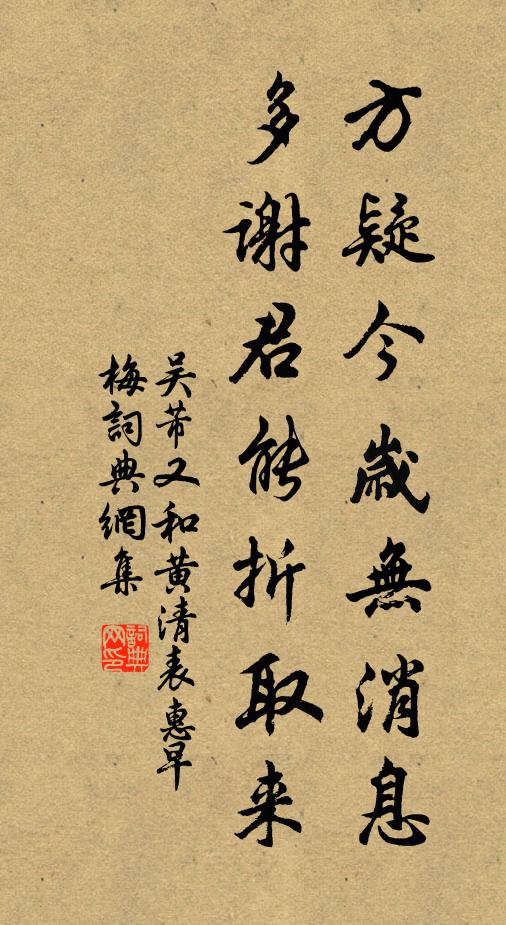 方疑今歲無消息
多謝君能折取来
吴芾又和黄清表惠早
梅詞典網集
詞典网印